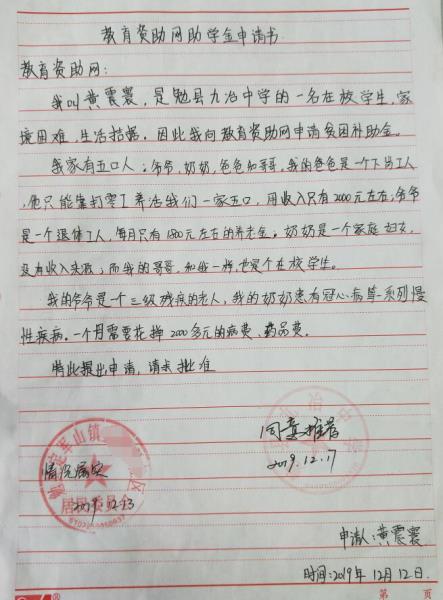 教育资助网助学金申请书
教育资助网：
我叫黄震寰，是勉县九冶中学的一名在校学生，家
境困难，生活拮据。因此我向教育资助网申请贫困补助金。
我家有五口人；爷爷，奶奶，爸爸和哥哥，我的爸爸是一个下岗工人
，他只能靠打零工养活我们一家五口，月收入只有2000元左右；爷爷
是一个退休工人，每月只有1800元左右的养老金；奶奶是一个家庭妇女，
没有收入来源；而我的哥哥，和我一样，也是个在校学生。
我的爷爷是一个三级残疾的老人，我的奶奶患有冠心病等一系列慢
性疾病。一个月需要花掉2000多元的病费、药品费。
特此提出申请，请求批准
同意推荐
2019.12.17
定军山镇
区
居民委员会
情况属实
2019.12.13
申请人：黄震寰
时间：2019年12月12日
第 页